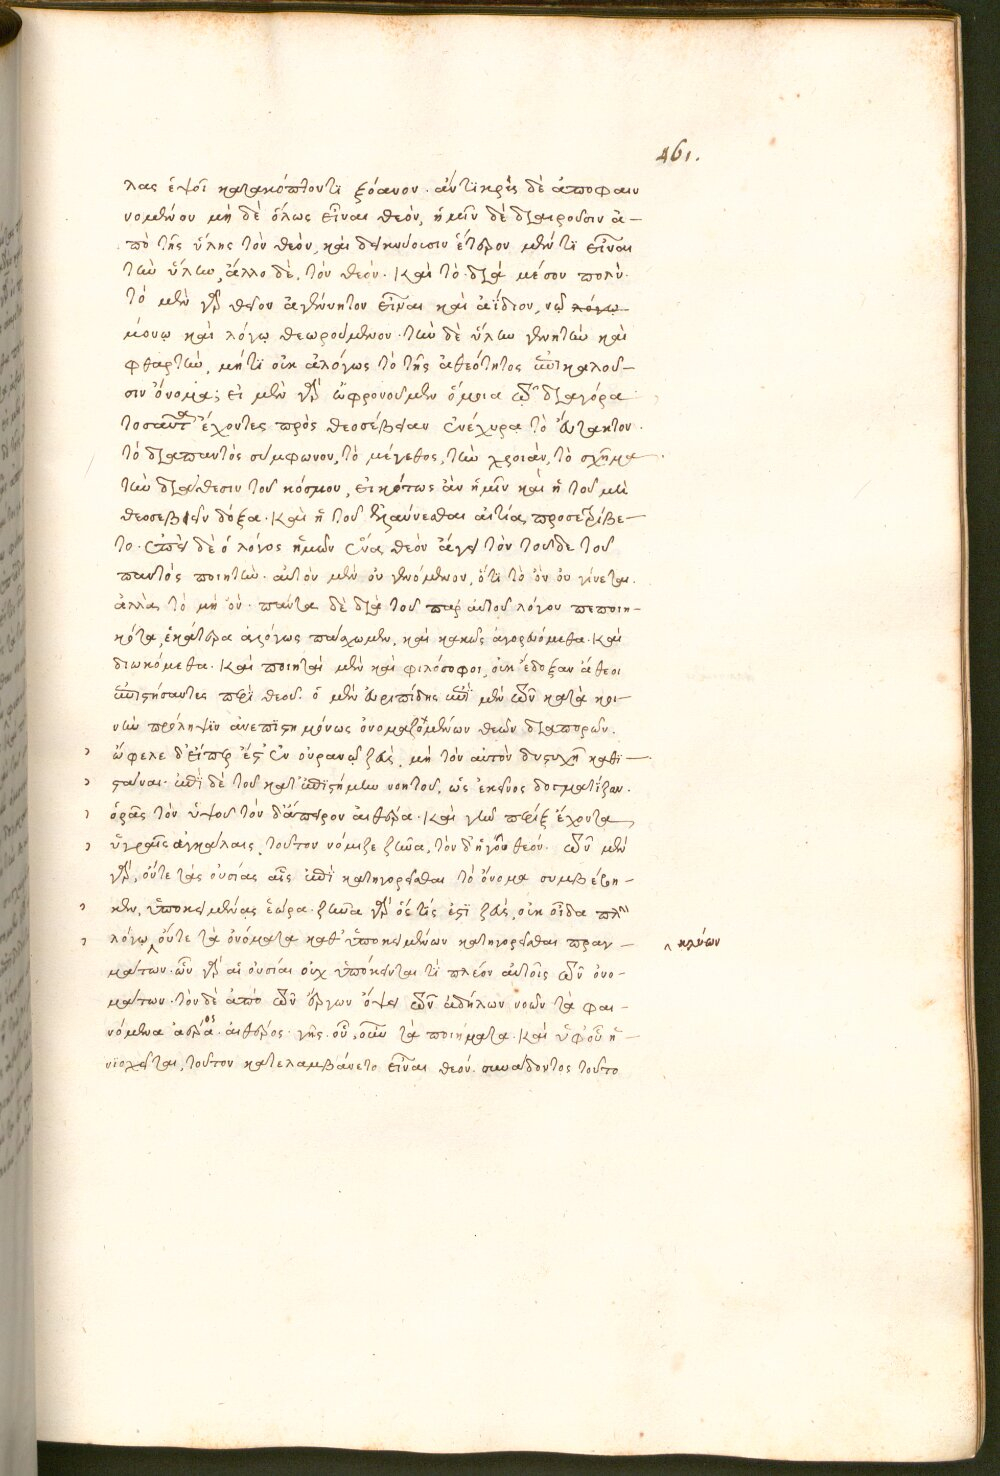 461.
λας ἕψοι κατακόπτοντι ξόανον. ἀντικρὺς δὲ ἀποφαιν
νομένου μὴ δὲ ὅλως εἶναι θεόν, ἡμῖν δὲ διαιροῦσιν ἀ-
πὸ τῆς ὕλης τὸν θεόν, καὶ δεικνύουσιν ἕτερον μέν τι εἶναι
τὴν ὕλην, ἄλλο δὲ, τὸν θεόν. Καὶ τὸ διὰ μέσου πολὺ.
τὸ μὲν γὰρ θεῖον ἀγέννητον εἶναι καὶ ἀΐδιον, νῷ λόγῳ
μόνῳ καὶ λόγῳ θεωρούμενον. τὴν δὲ ὕλην γενητὴν καὶ
φθαρτὴν, μήτι οὐκ ἀλόγως τὸ τῆς ἀθεότητος ἐπικαλοῦ-
σιν ὄνομα; εἰ μὲν γὰρ ἐφρονοῦμεν ὅμοια τῷ διαγόρα
τοσαῦτα ἔχοντες πρὸς θεοσέβειαν ἐνέχυρα τὸ εὔτακτον.
τὸ διαπαντὸς σύμφωνον, τὸ μέγεθος, τὴν χροιὰν, τὸ σχῆμα
τὴν διάθεσιν τοῦ κόσμου, εἰκότως ἂν ἡμῖν καὶ ἡ τοῦ μὴ
θεοσεβεῖν δόξα. Καὶ ἡ τοῦ ἐλαύνεσθαι αἰτία, προσετρίβε-
το. ἐπεὶ δὲ ὁ λόγος ἡμῶν ἕνα, θεὸν ἄγει τὸν τοῦδε τοῦ
παντὸς ποιητὴν. αὐτὸν μὲν οὐ γενόμενον, ὅτι τὸ ὂν οὐ γίνεται.
ἀλλὰ, τὸ μὴ ὄν. πάντα δὲ διὰ τοῦ παρ αὐτοῦ λόγου πεποιη-
κότα, ἑκάτερα ἀλόγως πάσχομεν, καὶ κακῶς ἀγορευόμεθα. Καὶ
διωκόμεθα. Καὶ ποιηταὶ μὲν καὶ φιλόσοφοι, οὐκ ἔδοξαν ἄθεοι
ἐπιστήσαντες περὶ θεοῦ. ὁ μὲν εὐριπίδης ἐπὶ μὲν τῶν κατὰ κοι-
νὴν πρόληψιν ἀνεπιστημόνως ὀνομαζομένων θεῶν διαπορῶν.
ὤφελε δ' εἴπερ ἔστ' ἐν οὐρανῷ ζεὺς, μὴ τὸν αὐτὸν δυστυχῆ καθι-
στάναι. ἐπὶ δὲ τοῦ κατ' ἐπιστήμην νοητοῦ, ὡς ἐκεῖνος δογματίζων.
ὁρᾶς τὸν ὑψοῦ τὸν δ' ἄπειρον αἰθέρα. Καὶ γῆν πέριξ ἔχοντα,
ὑγραῖς ἀγκάλαις, τοῦτον νόμιζε ζῆνα, τὸν δ' ἡγοῦ θεόν. τῶν μὲν
γὰρ, οὔτε τὰς οὐσίας αἷς ἐπὶ κατηγορεῖσθαι τὸ ὄνομα συμβέβη-
κεν, ὑποκειμένας ἑώρα. ζῆνα γὰρ ὅστις ἐστὶ ζεὺς, οὐκ οἶδα πλὴν
λόγῳ, οὔτε τὰ ὀνόματα καθ' ὑποκειμένων κατηγορεῖσθαι πραγ-
^ κλύων
μάτων. ὧν γὰρ αἱ οὐσίαι οὐχ ὑπόκεινται τί πλέον αὐτοῖς τῶν ὀνο-
μάτων. τὸν δὲ ἀπὸ τῶν ἔργων ὄψει τῶν ἀδήλων νοῶν τὰ φαι-
νόμενα ἀέρος. αἰθέρος. γῆς. οὗ, οὖν τὰ ποιήματα. Καὶ ὑφ' οὗ ἡ-
νιοχεῖται, τοῦτον κατελαμβάνετο εἶναι θεόν. συνάδοντος τούτῳ